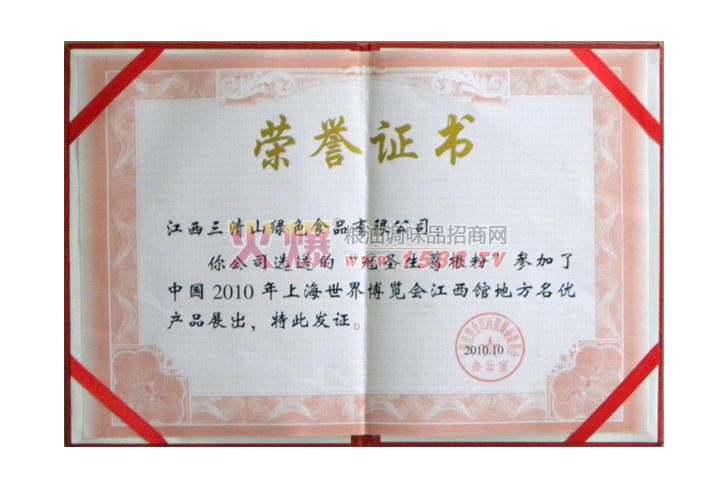 荣誉证书
江西三清山绿色食品有限公司
火爆 粮油调味品招商网
www.1588.TV
你公司选送的“ 圣生葛根粉”参加了
中国2010年上海世界博览会江西馆地方名优
产品展出，特此发证。
2010.10
办公室